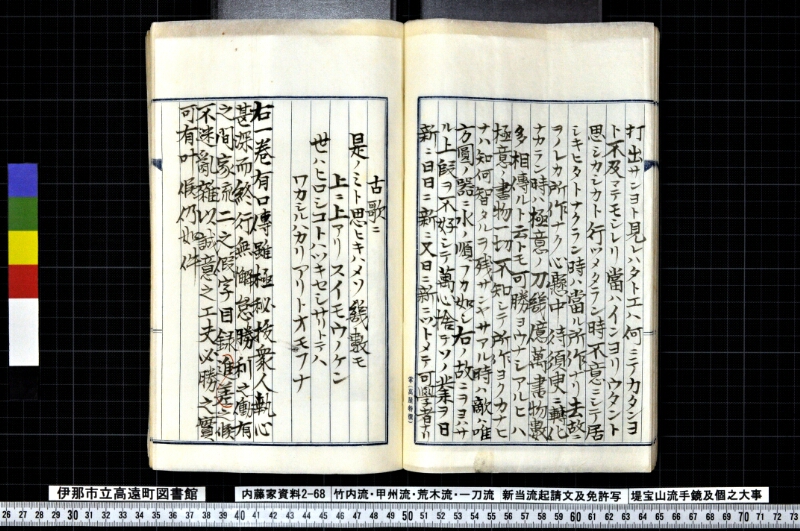 打出サンヨト見ハタトエハ何ニテカタンヨ
ト不及マテモシレリ當ハインヨリウタント
思シカシカト行ツメタラン時不意ニシテ居
シキヒタトナクラン時ハ當ル所作ナリ去故ニ
ナカラン時ハ極意ノ刀幾億萬書物数
多相傳ルト云トモ可勝ヨウナシアルヒハ
極意ノ書物一切不知シテ所作ヨクカナヒ
ナハ如何智タルヲ残サンヤサアル時ハ敵ハ唯
方圓ノ器ニ水ノ順フカ如シ右ノ故ニヨヨハサ
ル上餝ヲ不好シテ萬心捨テソノ業ヲ日
新ニ日日ニ新ニ又日ニ新ニツトメテ可學者ナリ
古歌ニ
是ノミト思ヒキハメソ幾数モ
上ニ上アリスイモウノケン
世ハヒロシコトハツキセシサリトテハ
ワカシルハカリアリトオモフナ
右一巻有口傳雖極秘授衆人執心
甚深而終行無懈怠勝利之働有
之間家流二之假字目録進差之候
不迷亂雑以誠意之工夫必勝之實
可有叶候仍如件
伊那市立高遠町図書館
内藤家資料2-68
竹内流・甲州流・荒木流・一刀流 新当流起請文及免許写
堤宝山流手鏡及個之大事